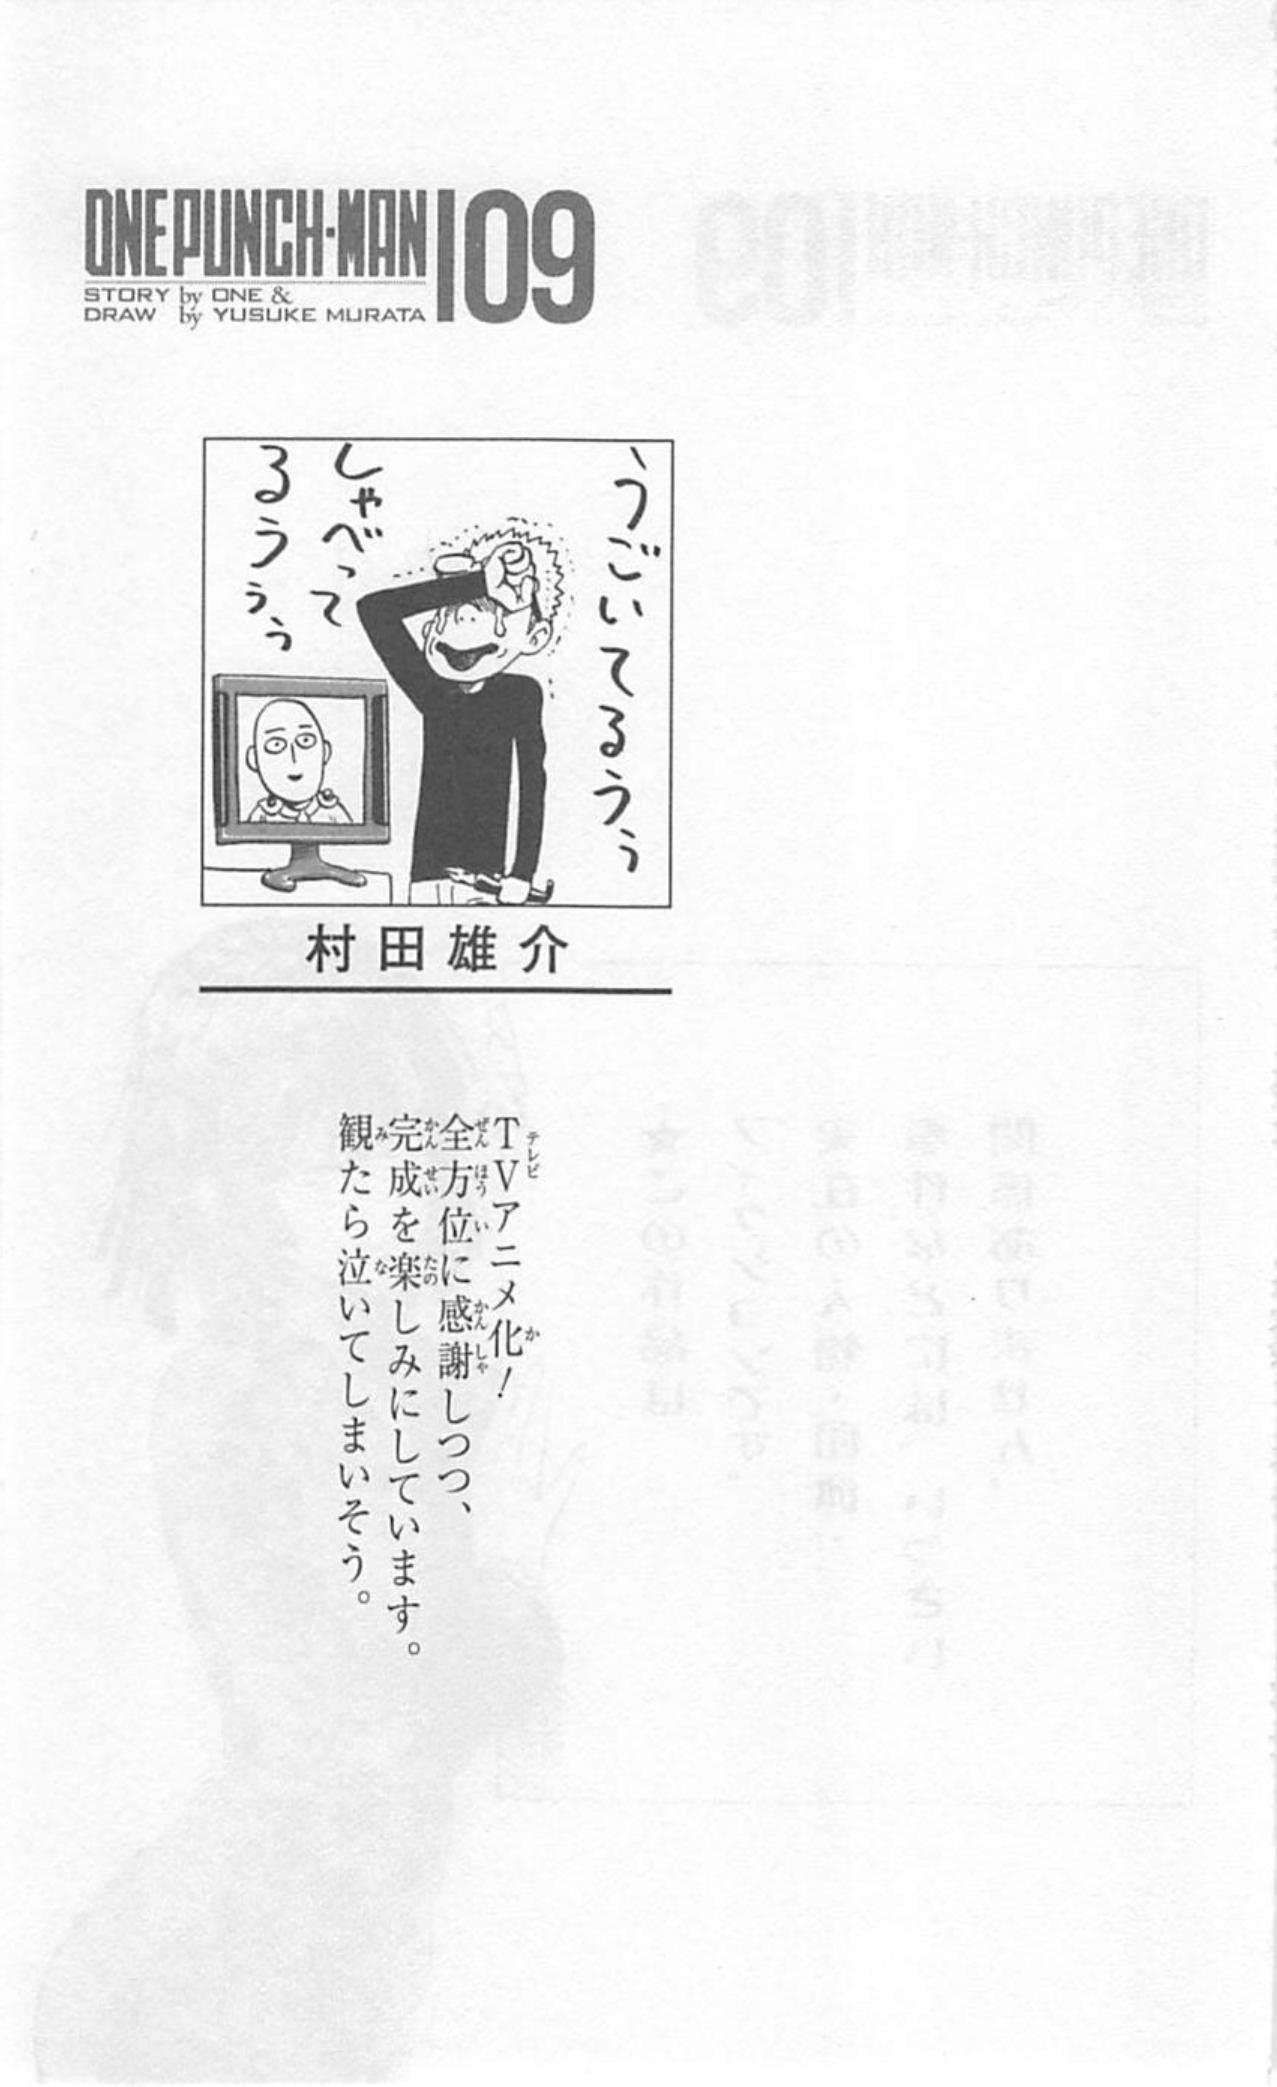 ONE PUNCH-MAN 09
STORY by ONE &
DRAW by YUSUKE MURATA
うごいてるうぅ
しゃべって
るうぅぅ
村田雄介
TVアニメ化!
全方位に感謝しつつ、
完成を楽しみにしています。
観たら泣いてしまいそう。